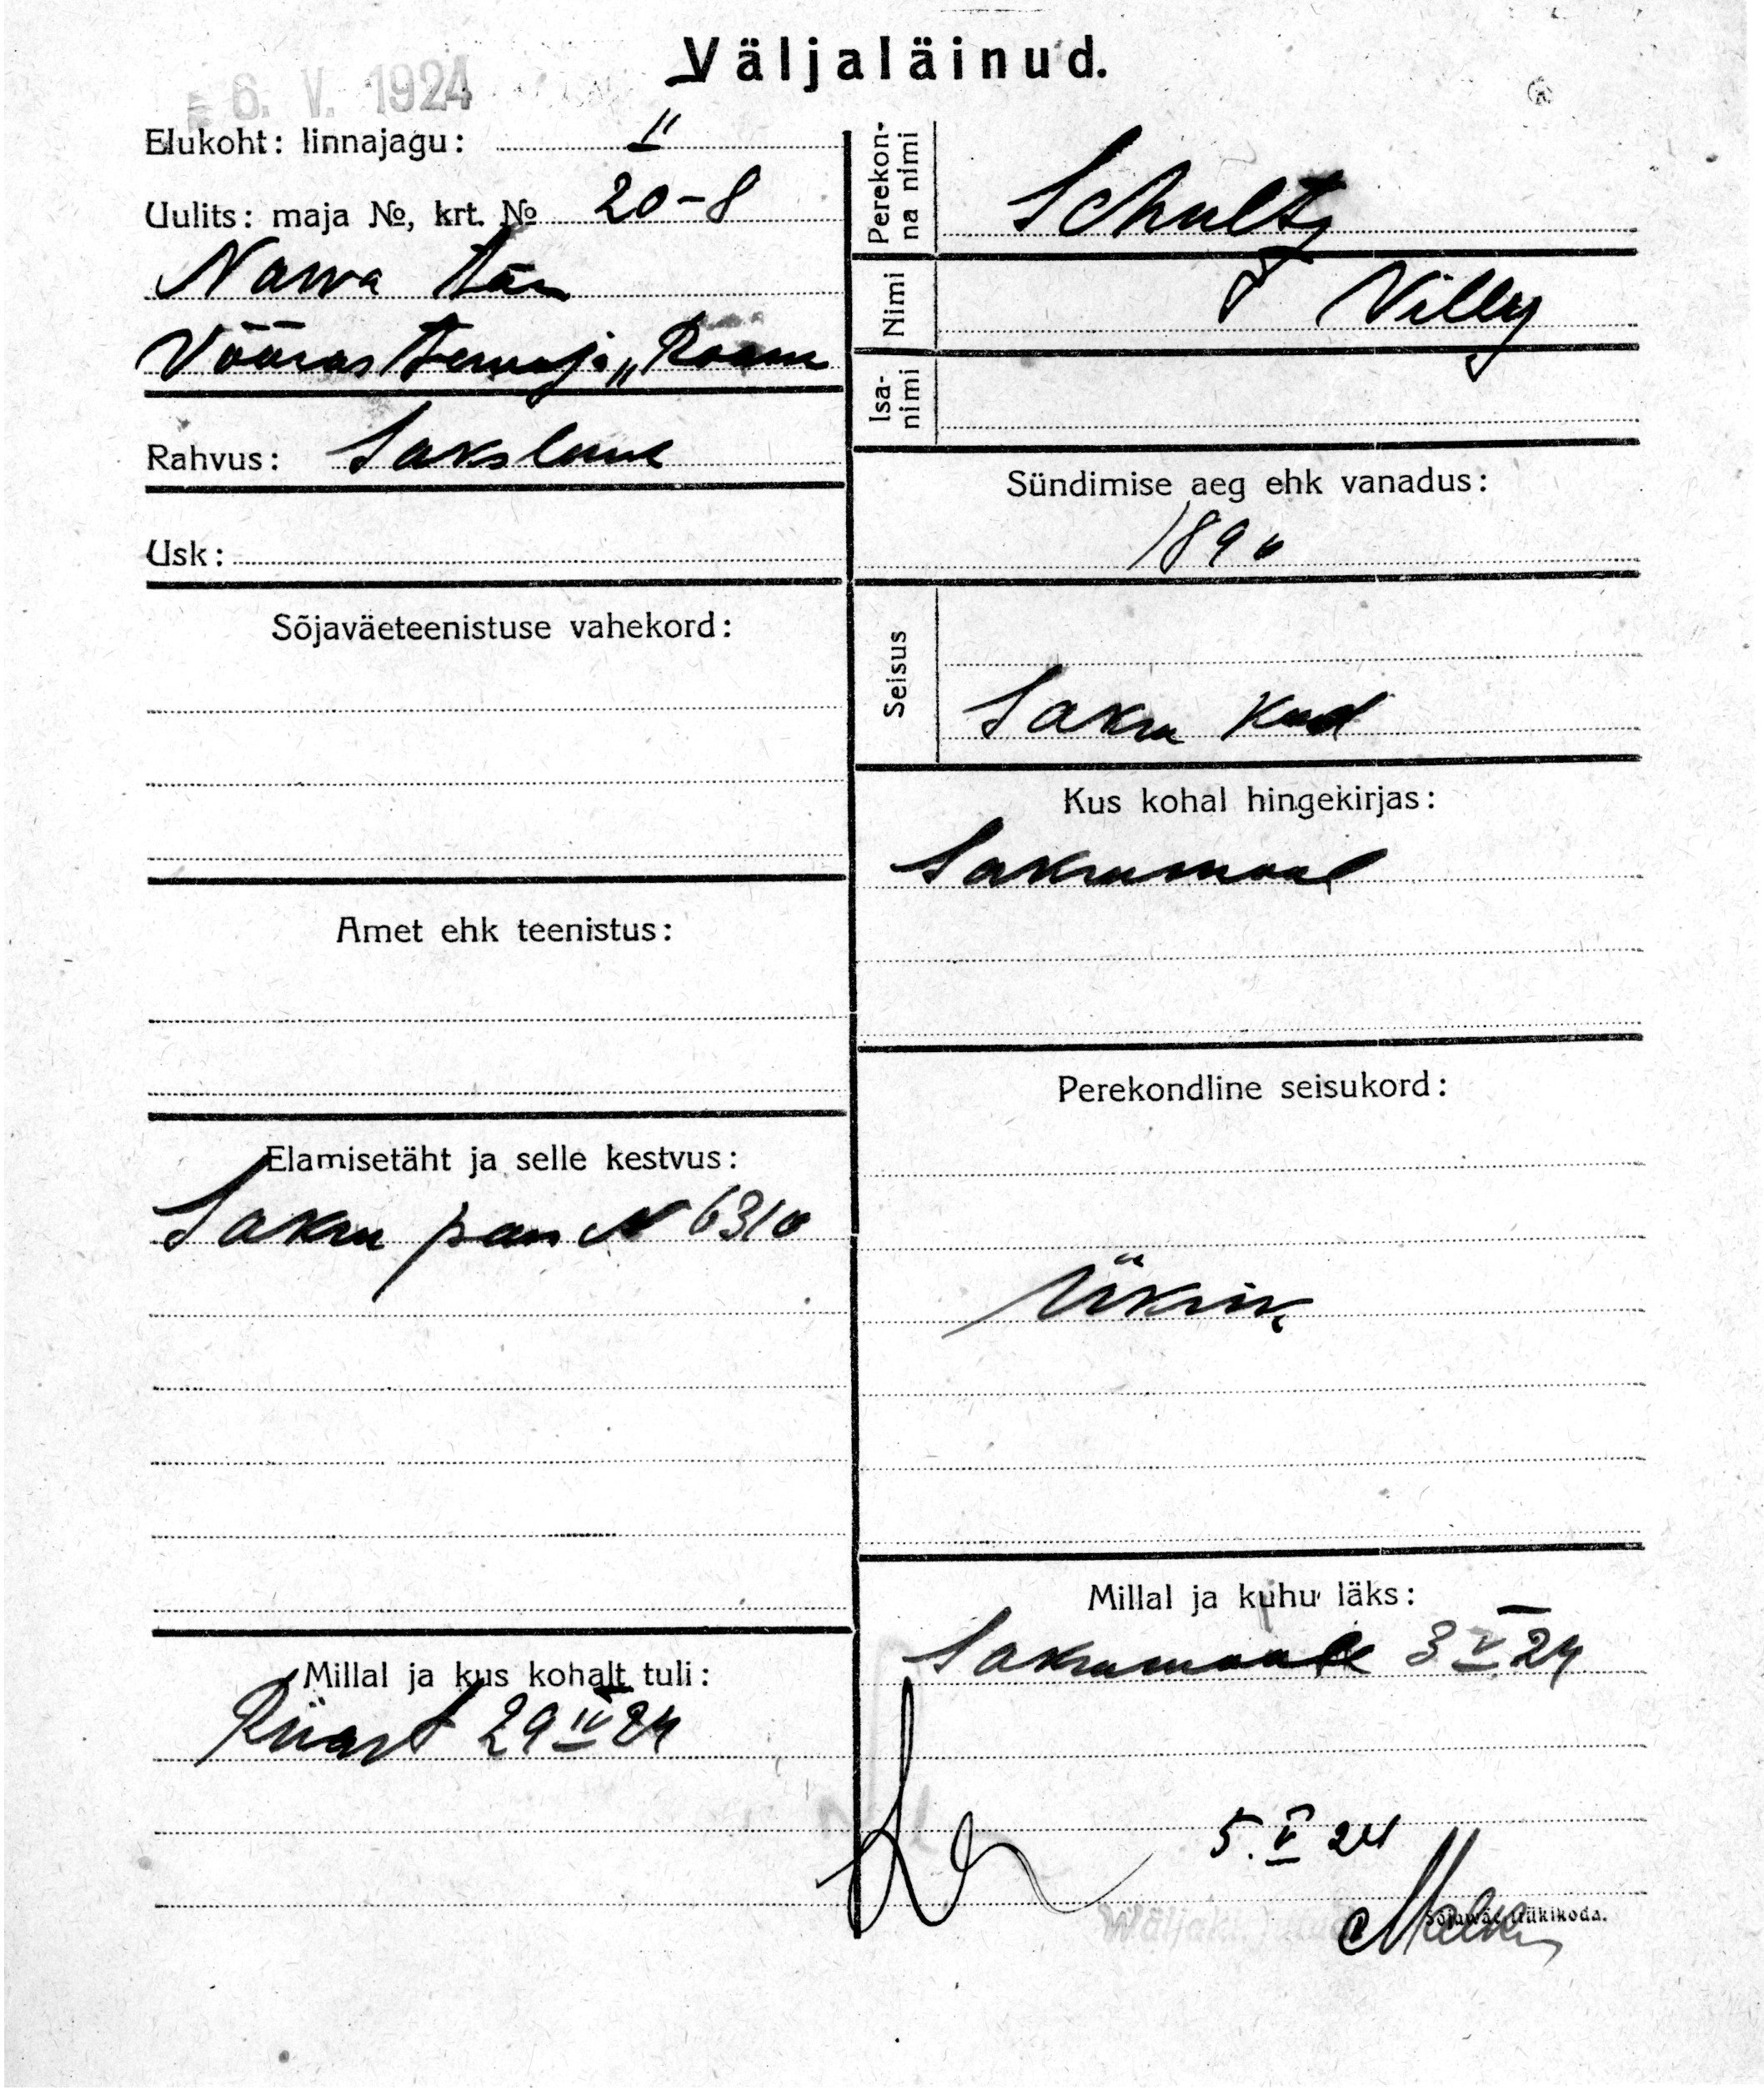 Väljaläinud.
6. V. 1924
Elukoht: linnajagu: II
Uulits: maja №, krt. № 20-8
Narva tän
Võõrastemaja „Room
Rahvus: Sakslane
Usk:
Sõjaväeteenistuse vahekord:
Amet ehk teenistus:
Elamisetäht ja selle kestvus:
Saksa pass N 6310
Millal ja kus kohalt tuli:
Riiast 29 IV 24
Perekonna nimi Schultz
Nimi Villy
Isanimi
Sündimise aeg ehk vanadus:
1890
Seisus
Saksa kod
Kus kohal hingekirjas:
Saksamaal
Perekondline seisukord:
Üksik
Millal ja kuhu läks:
Saksamaale 3 V 24
5. V 24
Sõjaväe trükikoda.